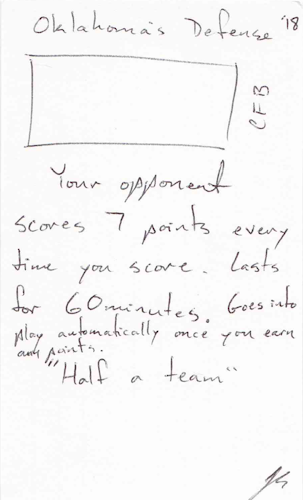 Oklahoma's Defense '18
CFB
Your opponent
scores 7 points every
time you score. Lasts
for 60 minutes. Goes into
play automatically once you earn
any points.
"Half a team"